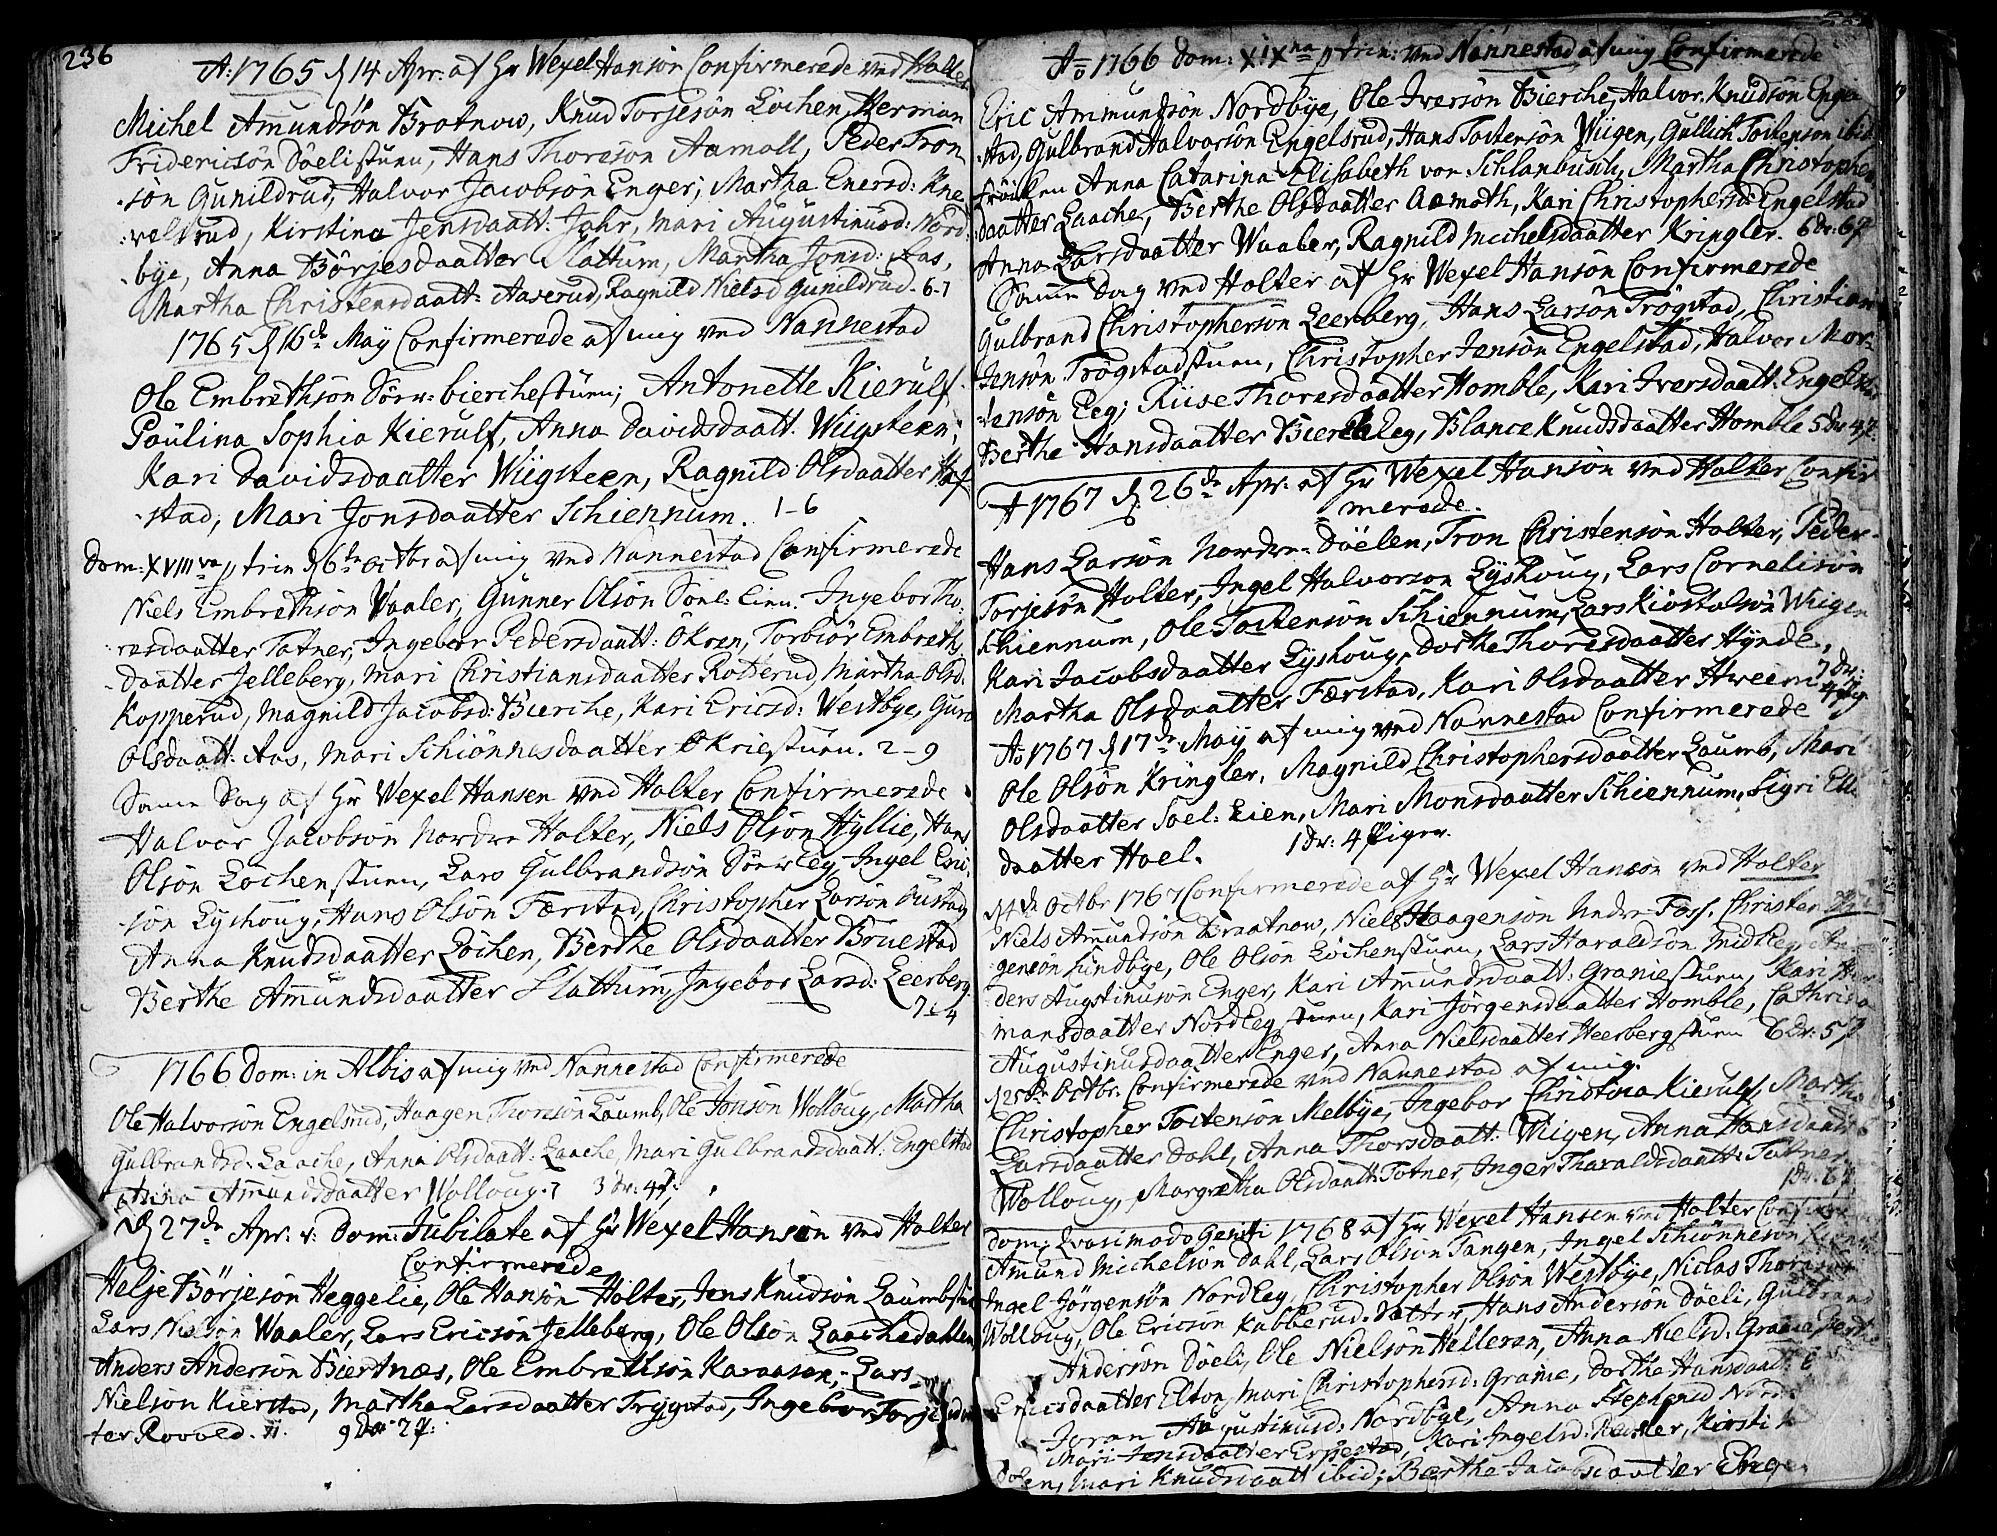 236
A: 1765 d 14 Apr: af Hr Wexel Hanson Confirmerede ved Holter
Michel Amundsön Brotnow, Knud Torjesön Löchen, Herman
Fridericsön Döelistuen, Hans Thoresön Aamoll, Peder Tron
-sön Gunildrud, Halvor Jacobsön Enger; Martha Enersd: Kne
:velsrud, Kirstina Jensdaatt: Jahr, Mari Augustinusd: Nord
:bÿe, Anna Börjesdaatter Slattum, Martha Jonsd: Aas,
Martha Christensdaatt: Aaserud, Ragnild Nielsd Gunildrud. 6-7
1765 d 16de Maÿ Confirmerede af mig ved Nannestad
Ole Embrethsön Sörn: bierchestuen; Antonette Kierulf
Paulina Sophia Kierulf, Anna Davidsdaatt. Wiigsteen;
Kari Davidsdaatter Wiigsteen, Ragnild Olsdaatter Haf
-stad, Mari Jonsdaatter Schiennum. 1-6
Dom: XVIIIva p trin d 6te Octbr af mig ved Nannestad Confirmerede
Niels Embrethsön Vaaler, Gunner Olsön Sönl: Eien. Ingebor Tho
:resdaatter Totner, Ingebor Pedersdaatt: Ökren, Torbiör Embreths
-daatter Jelleberg, Mari Christiansdaatter Rotterud, Martha Olsd.
Kopperud, Magnild Jacobsd: Bierche, Kari Ericsd: Westbÿe, Guro
Olsdaatt: Aas, Mari Schiönnesdaatter Økriestuen. 2-9
Samme Dag af Hr Wexel Hansen ved Holter Confirmerede
Halvor Jacobsön Nordre Holter, Niels Olsön Hyllie, Hans
Olsön Löchenstuen, Lars Gulbrandsön SörreEeg, Ingel Eric
-sön Lÿshoug, Hans Olsön Færstad, Christopher Larsön
Anna Knudsdaatter Löchen, Berthe Olsdaatter Bruestad
Berthe Amundsdaatter Slattum, Ingebor Larsd: Leerberg.
7-4
1766 Dom: in Albis af mig ved Nannestad Confirmerede
Ole Halvorsön Engelsrud, Haagen Thoresön Laumb, Ole Jonsön Wolloug, Martha
Gulbrandsd: Laache, Anna Olsdaatt: Laache, Mari Gulbrandsdaatt: Engelstad
Anna Amundsdaatter Wolloug. 7 3 dr: 4 p:
d 27de Apr: v: Dom: Jubilate af Hr Wexel Hansen ved Holter
Confirmerede
Helje Börjesön Heggelie, Ole Hansön Holter, Jens Knudsön Laumbstu
Lars Nielsön Waaler, Lars Ericsön Jelleberg, Ole Olsön Laachedahlen
Anders Andersön Biertnæs, Ole Embrethsön Karaasen, Lars
Nielsön Kierstad, Martha Larsdaatter Trÿgstad, Ingebor Torjesdaa
ter Rovold. 11. 9 dr 2 p:
Ao 1766 Dom: XIXna p trin: ved Nannestad af mig Confirmerede
Eric Ammundsön Nordbÿe, Ole Iversön Bierche, Halvor Knudsön Engel
-stad, Gulbrand Halvorsön Engelsrud, Hans Tostensön Wiigen, Gullich Tostensön ibid
Fröiken Anna Catarina Elisabeth von Schlanbusch, Martha Christophers
daatter Laache, Berthe Olsdaatter Aamoth, Kari Christophersd: Engelstad
Anna Larsdaatter Waaler, Ragnild Michelsdaatter Kringler. 6 dr: 6 p
Samme Dag ved Holter af Hr Wexel Hansön Confirmerede
Gulbrand Christophersön Leerberg, Hans Larsön Trögstad, Christian
Jensön Trögstadstuen, Christopher Jensön Engelstad, Halvor Mor-
-tensön Eeg; Riise Thoresdaatter Homble, Kari Iversdaatt: Engelstad
Berthe Hansdaatter Eeg, Blance Knudsdaatter Homble 5 dr 4 p.
A 1767 d 26de Apr: af Hr Wexel Hansön ved Holter Confir
merede.
Hans Larsön Nordre-Döelen, Tron Christensön Holter, Peder
Torjesön Holter, Ingel Halvorson Lÿshoug, Lars Cornelisön
Schiennum, Ole Tostensön Schiennum, Lars Kiöstolsön Wiigen
Kari Jacobsdaatter Lÿshoug, Dorthe Thoresdaatter Hÿnde,
Martha Olsdaatter Færstad, Kari Olsdaatter Hween. 7 Dr:
4 Pig
Ao 1767 d 17de Maÿ af mig ved Nannestad Confirmerede
Ole Olsön Kringler. Magnild Christophersdaatter Laumb, Mari
Olsdaatter Soel: Eien, Mari Monsdaatter Schiennum, Sigri
daatter Hoel. 1 dr: 4 Piger.
d 4de Octbr 1767 Confirmerede af Hr Wexel Hanson ved Holter
Niels Amundsön Braatnow, Niels Haagensön Nedre Foss. Christen
gensön Lundbÿe, Ole Olsön Löchenstuen, Lars Haraldsön MidtEeg, An
-ders Augstinusön Enger, Kari Amundsdaatt: Graniestuen, Kari Her
mansdaatter NordEegstuen, Kari Jörgensdaatter Homble, Cathrina
Augustinusdaatter Enger, Anna Nielsdaatter Heerbergstuen 6 dr: 5 p
d 25de Octbr: Confirmerede ved Nannestad af mig.
Christopher Tostensön Melbÿe, Ingebor Christina Kierulf, Martha
Larsdaatter Dahl, Anna Thorsdaatt: Wiigen, Anna Hansdaatt
Wolloug, Margretha Olsdaatt: Totner, Inger Tharaldsdaatt: Totner
1 dr. 6 p
Dom: Qvasimodo Geniti 1768 af Hr Wexel Hansen ved Holter Confirm
Amund Michelsön Dahl, Lars Olsön Tangen, Ingel Schiönnesön
Ingel Jörgensön NordEeg, Christopher Olsön Westbÿe, Niclas Thoresön
Wolloug, Ole Ericsön Kabberud-Satter, Hans Andersön Döeli, Gulbrand
Andersön Döeli, Ole Nielsön Helleren, Anna Nielsd: Granie, Berthe
Ericsdaatter Elton, Mari Christophersd: Granie, Dorthe Hansdaatt:
Joran Augustinusd: Nordbÿe, Anna Stephensd Nord
Mari Jensdaatter Erpestad, Kari Ingelsd: , Kirsti
en, Mari Knudsdaatt ibid; Berthe Jacobsdaatter Enge